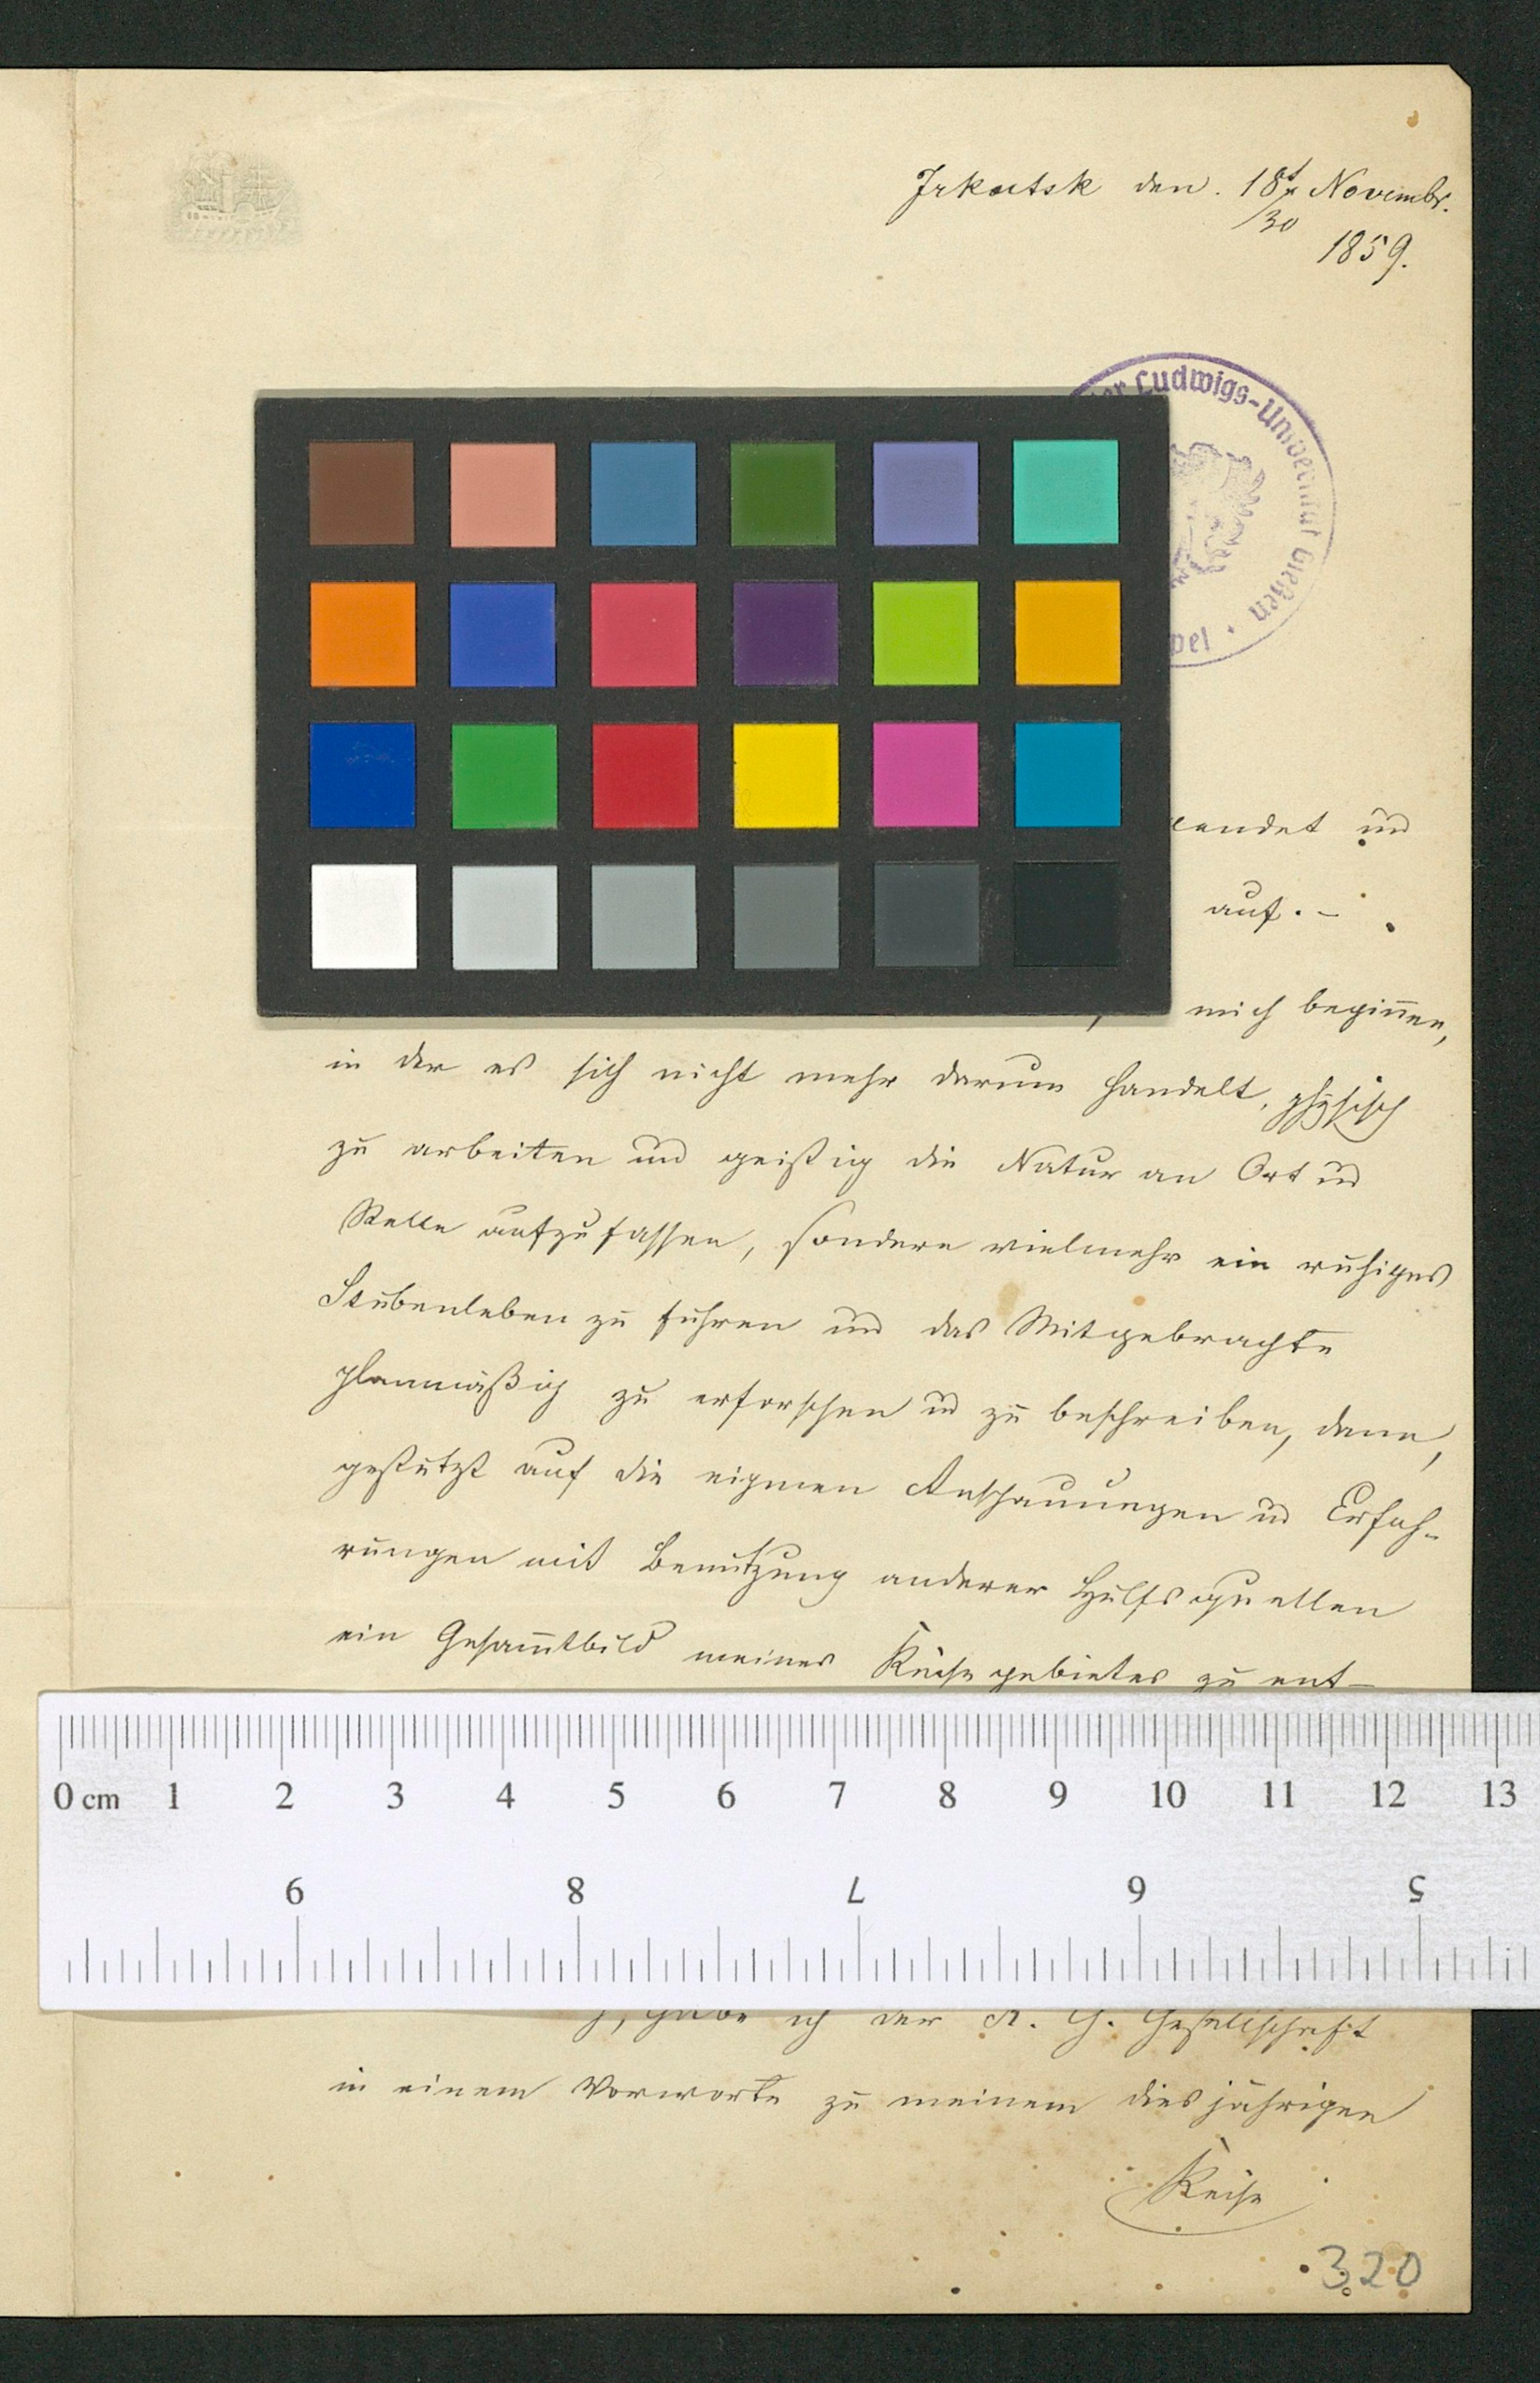 Irkutsk den. 18t Novembr.
/30
1859.
Ludwigs-Universität Gießen
endet und
auf. –
mich begin̅en,
in der es sich nicht mehr darum handelt, physisch
zu arbeiten und geistig die Natur an Ort u
Stelle aufzufassen, sondern vielmehr ein ruhiges
Stubenleben zu führen und das Mitgebrachte
planmäßig zu erforschen u zu beschreiben, dann,
gestützt auf die eignen Anschauungen u Erfah-
rungen mit Benützung anderer Hülfsquellen
ein Gesam̅tbild meines Reisegebietes zu ent-
0 cm 1 2 3 4 5 6 7 8 9 10 11 12 13
9 8 7 6 5
habe ich der K. G. Gesellschaft
in einem Vorworte zu meinem diesjährigen
Reise
320